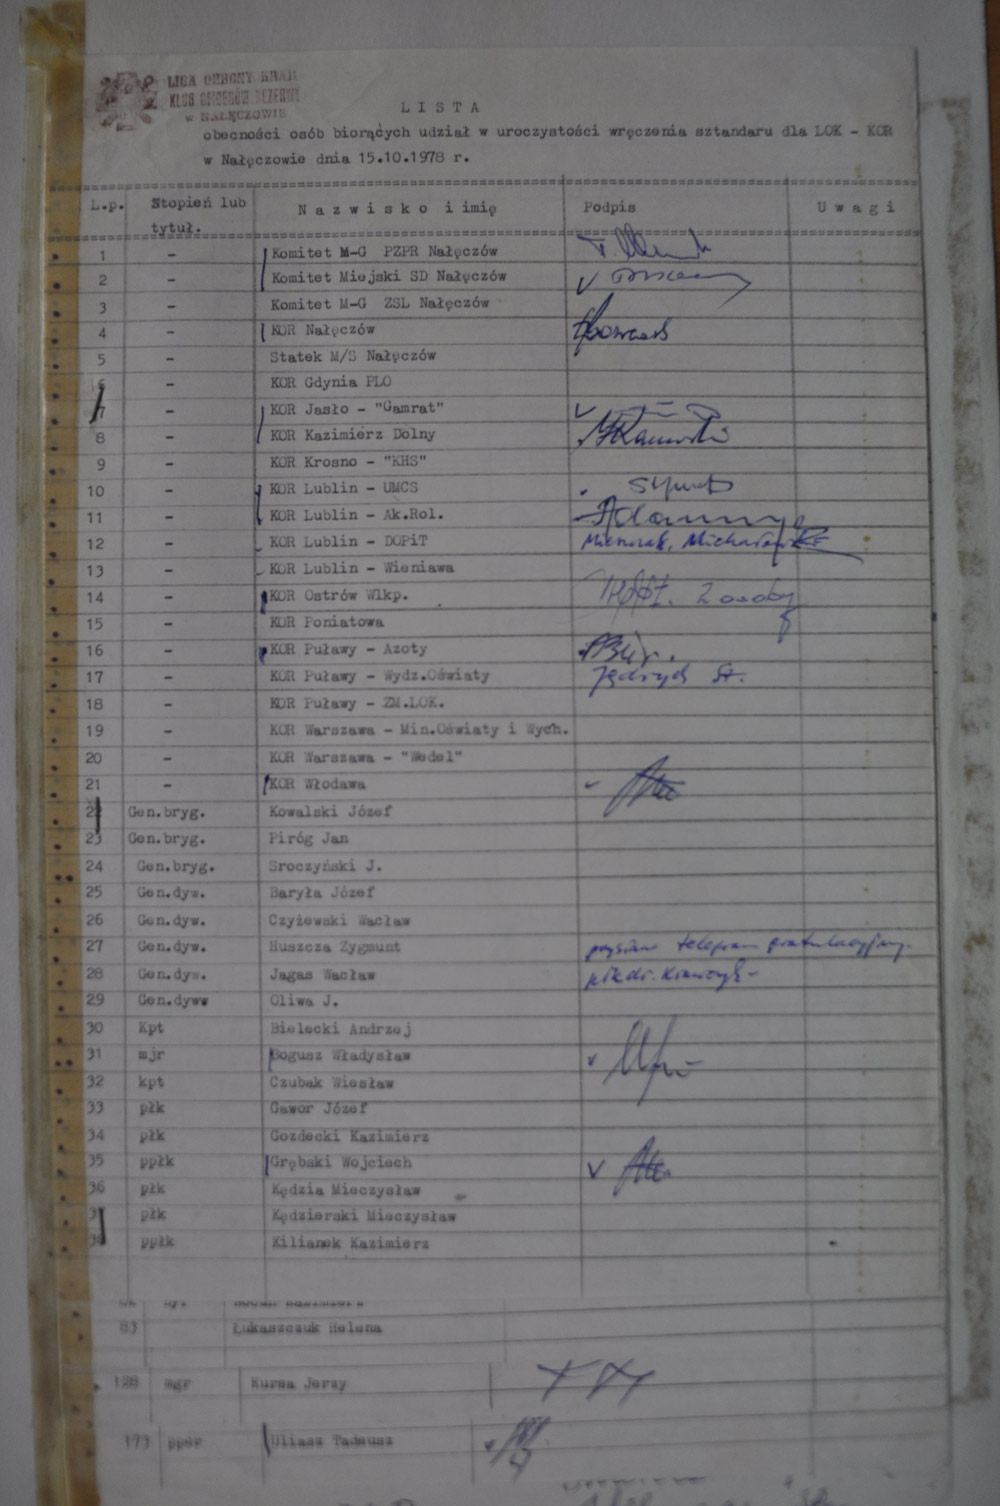 LIGA OBRONY KRAJU
KLUB OFICERÓW REZERWY
w NAŁĘCZOWIE
L I S T A
obecności osób biorących udział w uroczystości wręczenia sztandaru dla LOK - KOR
w Nałęczowie dnia 15.10.1978 r.
L.p. Stopień lub tytuł. N a z w i s k o i imię Podpis U w a g i
1 - Komitet M-G PZPR Nałęczów
2 - Komitet Miejski SD Nałęczów
3 - Komitet M-G ZSL Nałęczów
4 - KOR Nałęczów
5 - Statek M/S Nałęczów
6 - KOR Gdynia PLO
7 - KOR Jasło - "Gamrat"
8 - KOR Kazimierz Dolny
9 - KOR Krosno - "KHS"
10 - KOR Lublin - UMCS
11 - KOR Lublin - Ak.Rol.
12 - KOR Lublin - DOPiT
13 - KOR Lublin - Wieniawa
14 - KOR Ostrów Wlkp. 2 osoby
15 - KOR Poniatowa
16 - KOR Puławy - Azoty
17 - KOR Puławy - Wydz.Oświaty Jędrych St.
18 - KOR Puławy - ZM.LOK.
19 - KOR Warszawa - Min.Oświaty i Wych.
20 - KOR Warszawa - "Wedel"
21 - KOR Włodawa
22 Gen.bryg. Kowalski Józef
23 Gen.bryg. Piróg Jan
24 Gen.bryg. Sroczyński J.
25 Gen.dyw. Baryła Józef
26 Gen.dyw. Czyżewski Wacław
27 Gen.dyw. Huszcza Zygmunt przysłał telegram gratulacyjny.
28 Gen.dyw. Jagas Wacław
29 Gen.dyww Oliwa J.
30 Kpt Bielecki Andrzej
31 mjr Bogusz Władysław
32 kpt Czubak Wiesław
33 płk Gawor Józef
34 płk Gozdecki Kazimierz
35 ppłk Grębski Wojciech
36 płk Kędzia Mieczysław
37 płk Kędzierski Mieczysław
38 ppłk Kilianek Kazimierz
83 Łukaszczuk Helena
128 mgr Kursa Jerzy
173 Uliasz Tadeusz